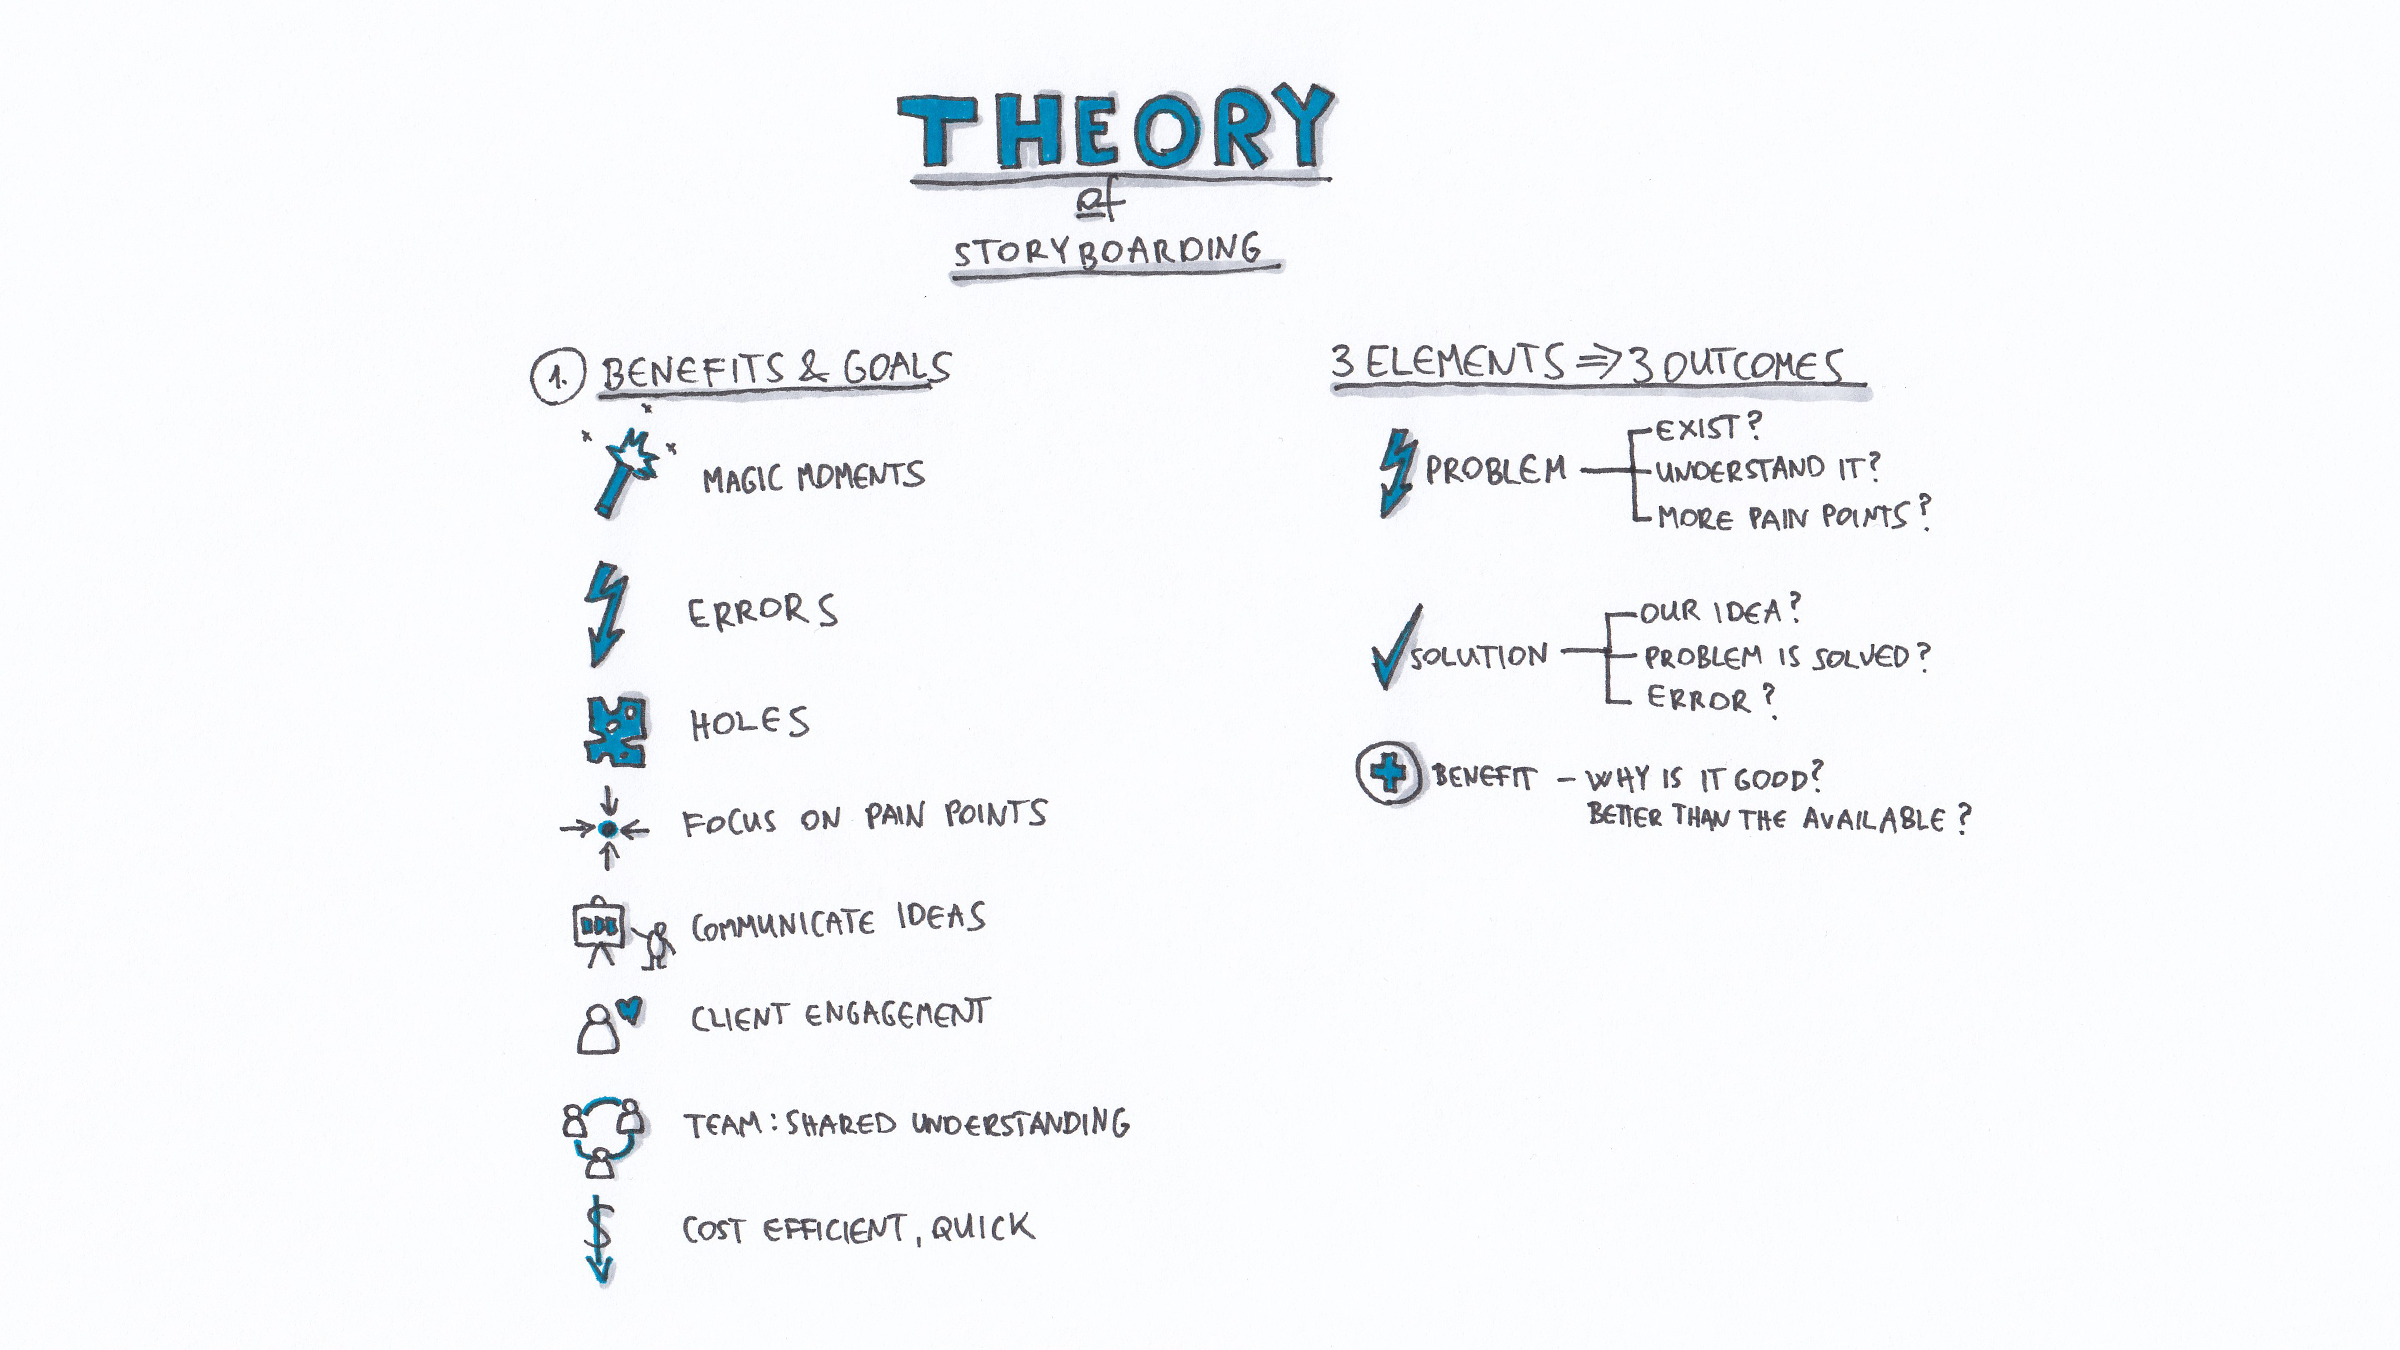 THEORY
of
STORYBOARDING
1. BENEFITS & GOALS
MAGIC MOMENTS
ERRORS
HOLES
FOCUS ON PAIN POINTS
COMMUNICATE IDEAS
CLIENT ENGAGEMENT
TEAM: SHARED UNDERSTANDING
$
COST EFFICIENT, QUICK
3 ELEMENTS => 3 OUTCOMES
PROBLEM
EXIST?
UNDERSTAND IT?
MORE PAIN POINTS?
SOLUTION
OUR IDEA?
PROBLEM IS SOLVED?
ERROR?
BENEFIT – WHY IS IT GOOD?
BETTER THAN THE AVAILABLE?